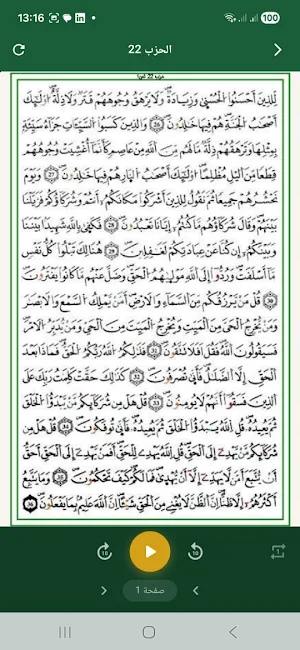 13:16
100
الحزب 22
حزب 22 ثمن 1
لِّلذِينَ أَحْسَنُوا الْحُسْنَىٰ وَزِيَادَةٌ وَلَا يَرْهَقُ وُجُوهَهُمْ قَتَرٌ وَلَا ذِلَّةٌ أُوْلَٰئِكَ
أَصْحَٰبُ الْجَنَّةِ هُمْ فِيهَا خَٰلِدُونَ 26 وَالذِينَ كَسَبُوا السَّيِّـَٔاتِ جَزَآءُ سَيِّئَةٍ
بِمِثْلِهَا وَتَرْهَقُهُمْ ذِلَّةٌ مَّا لَهُم مِّنَ اللَّهِ مِنْ عَاصِمٍ كَأَنَّمَا أُغْشِيَتْ وُجُوهُهُمْ
قِطَعًا مِّنَ اَلَيْلِ مُظْلِمًا أُوْلَٰئِكَ أَصْحَٰبُ النَّارِ هُمْ فِيهَا خَٰلِدُونَ 27 وَيَوْمَ
نَحْشُرُهُمْ جَمِيعًا ثُمَّ نَقُولُ لِلذِينَ أَشْرَكُوا مَكَانَكُمْ أَنتُمْ وَشُرَكَآؤُكُمْ فَزَيَّلْنَا
بَيْنَهُمْ وَقَالَ شُرَكَآؤُهُم مَّا كُنتُمْ إِيَّانَا تَعْبُدُونَ 28 فَكَفَىٰ بِاللَّهِ شَهِيدًا بَيْنَنَا
وَبَيْنَكُمْ إِن كُنَّا عَنْ عِبَادَتِكُمْ لَغَٰفِلِينَ 29 هُنَالِكَ تَبْلُوا كُلُّ نَفْسٍ
مَّا أَسْلَفَتْ وَرُدُّوا إِلَى اللَّهِ مَوْلَىٰهُمُ الْحَقِّ وَضَلَّ عَنْهُم مَّا كَانُوا يَفْتَرُونَ
30 قُلْ مَنْ يَرْزُقُكُم مِّنَ السَّمَآءِ وَالَارْضِ أَمَّنْ يَمْلِكُ السَّمْعَ وَالَابْصَٰرَ
وَمَنْ يُخْرِجُ الْحَيَّ مِنَ الْمَيِّتِ وَيُخْرِجُ الْمَيِّتَ مِنَ الْحَيِّ وَمَنْ يُدَبِّرُ الَامْرَ
فَسَيَقُولُونَ اللَّهُ فَقُلَ اَفَلَا تَتَّقُونَ 31 فَذَٰلِكُمُ اللَّهُ رَبُّكُمُ الْحَقُّ فَمَاذَا بَعْدَ
الْحَقِّ إِلَّا الضَّلَٰلُ فَأَنَّىٰ تُصْرَفُونَ 32 كَذَٰلِكَ حَقَّتْ كَلِمَٰتُ رَبِّكَ عَلَى
الذِينَ فَسَقُوا أَنَّهُمْ لَا يُومِنُونَ 33 قُلْ هَلْ مِن شُرَكَآئِكُم مَّنْ يَبْدَؤُا الْخَلْقَ
ثُمَّ يُعِيدُهُ قُلِ اللَّهُ يَبْدَؤُا الْخَلْقَ ثُمَّ يُعِيدُهُ فَأَنَّىٰ تُوفَكُونَ 34 قُلْ هَلْ مِن
شُرَكَآئِكُم مَّنْ يَهْدِي إِلَى الْحَقِّ قُلِ اللَّهُ يَهْدِي لِلْحَقِّ أَفَمَنْ يَهْدِي إِلَى الْحَقِّ أَحَقُّ
أَنْ يُتَّبَعَ أَمَّن لَّا يَهَدِّي إِلَّا أَنْ يُهْدَىٰ فَمَا لَكُمْ كَيْفَ تَحْكُمُونَ 35 وَمَا يَتَّبِعُ
أَكْثَرُهُمُ إِلَّا ظَنًّا إِنَّ الظَّنَّ لَا يُغْنِي مِنَ الْحَقِّ شَيْـًٔا إِنَّ اللَّهَ عَلِيمٌ بِمَا يَفْعَلُونَ 36
10
10
1
صفحة 1